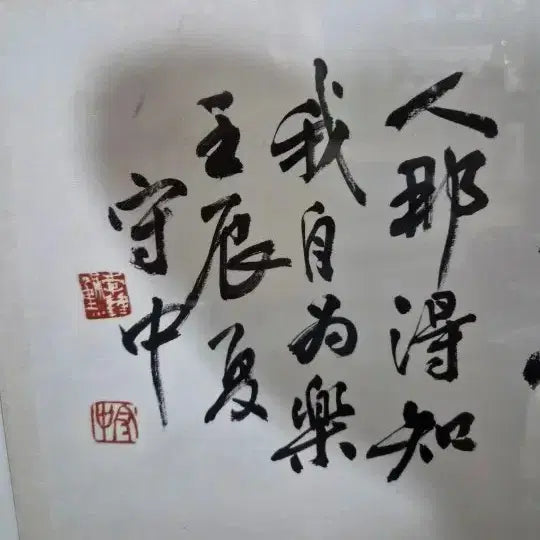 人那得知
我自为樂
壬辰夏
守中